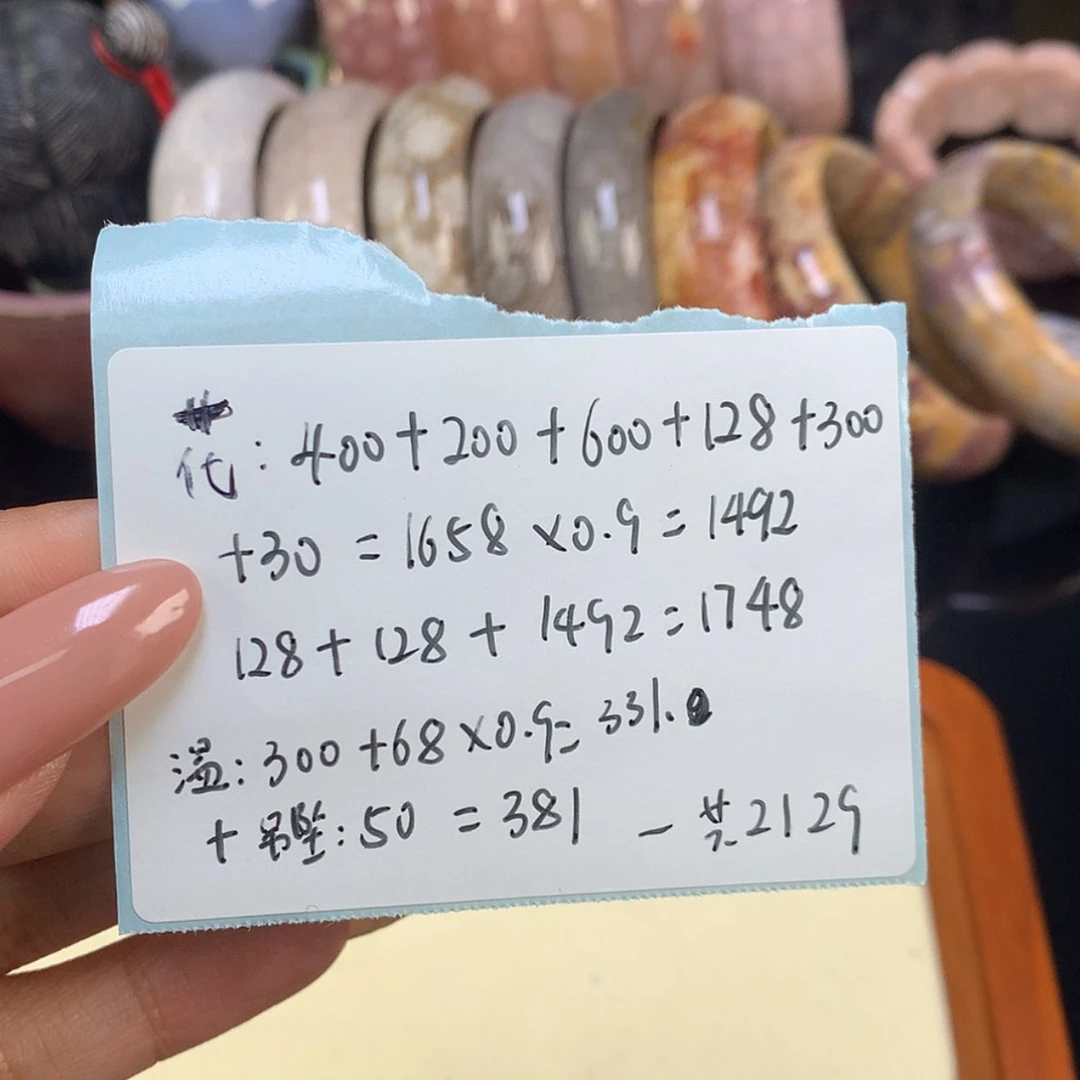 代: 400+200+600+128+300
+30 = 1658 ×0.9 = 1492
128+128+1492=1748
溢: 300+68×0.9= 331.
+吊坠: 50 = 381 — 共2129